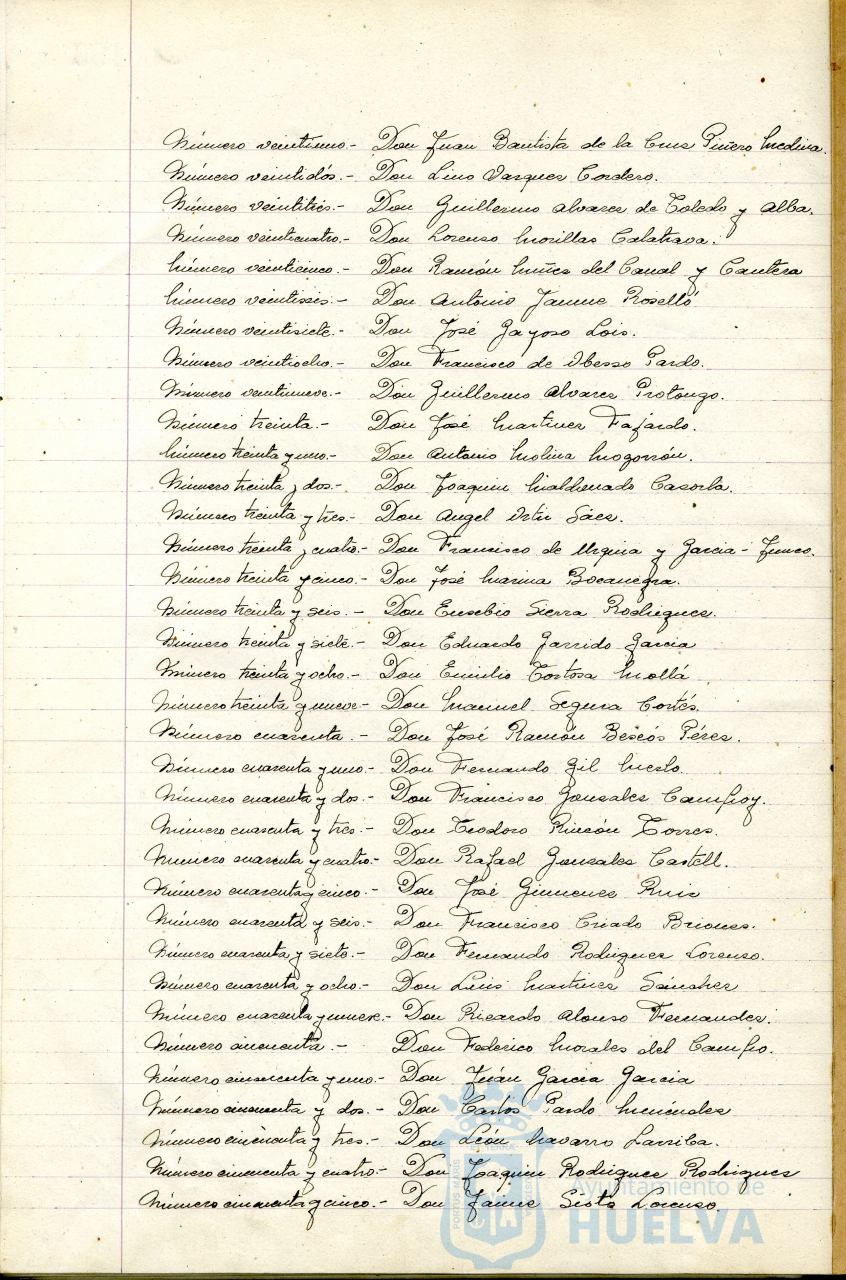 Número veintiuno.- Don Juan Bautista de la Cruz Piñero Medina.
Número veintidós.- Don Lino Vazquez Cordero.
Número veintitrés.- Don Guillermo Alvarez de Toledo y Alba.
Número veinticuatro.- Don Lorenzo Morillas Calatrava.
Número veinticinco.- Don Ramón Muñiz del Canal y Cantera
Número veintiseis.- Don Antonio Jaume Roselló
Número veintisiete.- Don José Gayoso Lois.
Número veintiocho.- Don Francisco de Pardo.
Número veintinueve.- Don Guillermo Alvarez Prolongo.
Número treinta.- Don José Martinez Fajardo.
Número treinta y uno.- Don Antonio Molina Mogorrón.
Número treinta y dos.- Don Joaquin Maldonado Cazorla.
Número treinta y tres.- Don Angel Ortiz Sáez.
Número treinta y cuatro.- Don Francisco de Urquia y Garcia-Junco.
Número treinta y cinco.- Don José Marina Bocanegra.
Número treinta y seis.- Don Eusebio Sierra Rodriguez.
Número treinta y siete.- Don Eduardo Garrido Garcia
Número treinta y ocho.- Don Emilio Tortosa Mollá
Número treinta y nueve- Don Manuel Segura Cortés.
Número cuarenta.- Don José Ramón Bescós Pérez.
Número cuarenta y uno- Don Fernando Gil
Número cuarenta y dos.- Don Francisco Gonzalez Campoy.
Número cuarenta y tres.- Don Teodoro Rincón Torres.
Número cuarenta y cuatro.- Don Rafael Gonzalez Castell.
Número cuarenta y cinco.- Don José Gimenez Ruiz
Número cuarenta y seis.- Don Francisco Criado Briones.
Número cuarenta y siete.- Don Fernando Rodriguez Lorenzo.
Número cuarenta y ocho.- Don Luis Martinez Sánchez
Número cuarenta y nueve.- Don Ricardo Alonso Fernandez.
Número cincuenta.- Don Federico Morales del Campo.
Número cincuenta y uno.- Don Juán Garcia Garcia
Número cincuenta y dos.- Don Carlos Pardo Menéndez
Número cincuenta y tres.- Don León Navarro Larriba.
Número cincuenta y cuatro- Don Joaquin Rodriguez Rodriguez
Número cincuenta y cinco.- Don Jaime Sisto Lorenzo.
Ayuntamiento de
HUELVA